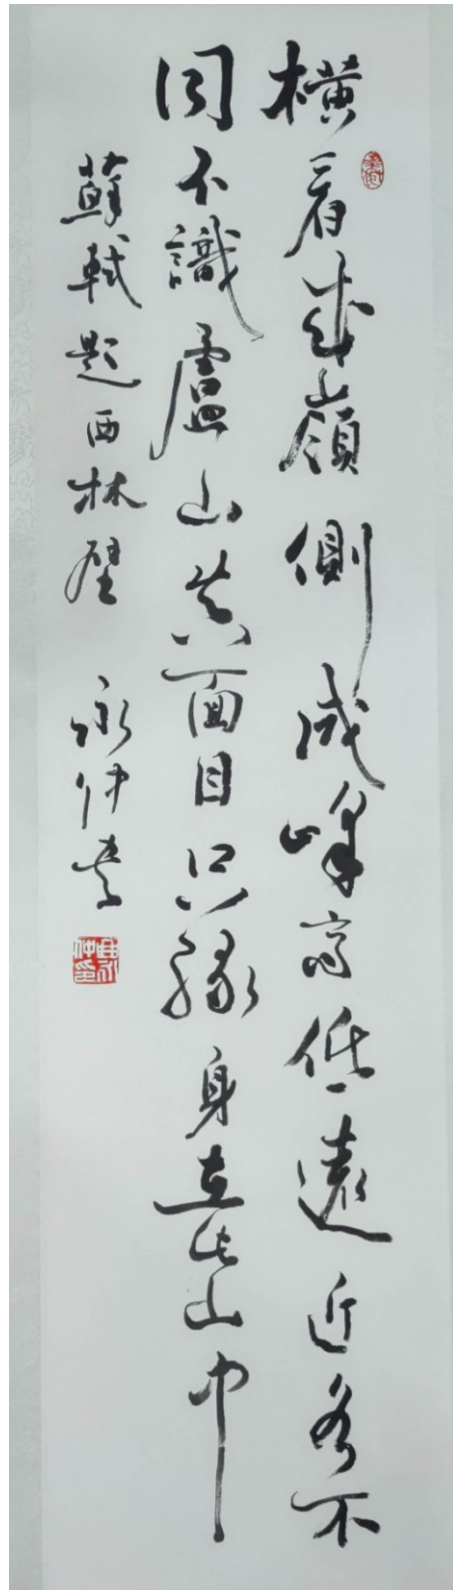 橫看成嶺側成峰高低遠近各不
同不識盧山真面目只緣身在此山中
蘇軾題西林壁 永仲書
曲永仲印